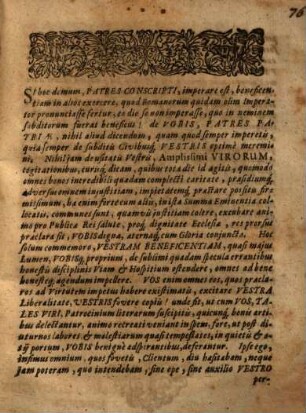 76
SI hoc demum, PATRES CONSCRIPTI, imperare est, beneficen-
tiam in alios exercere, quod Romanorum quidam olim Impera-
tor pronuntiasse fertur, eo die se non imperasse, quo is neminem
subditorum suorum beneficus! de VOBIS, PATRES PA-
TRIÆ, nihil aliud dicendum, quam quod semper imperetis,
quia semper de subditis Civibusque VESTRIS optime meremi-
ni, Nihil jam de vestratu Vestris, Amplissimi VIRORUM,
cogitationibus, curisque dicam, quibus tota die id agitis, quo modo
omnes bonos incredibili quadam complecti caritate, præsidiumque
adversus omnem injustitiam, impietatemque præstare possitis fir-
missimum, ita enim fert cum alii, in ista Summa Eminentia
collocati, communes sunt, quamvis justitiam colere, excubare ani-
mo pro Publica Rei salute, prog dignitate Ecclesia, res prorsus
præclara sit, VOBISque, æternaque cum Gloria conjuncta. Hoc
Solum commemoro, VESTRAM BENEFICENTIAM, quasi majus
Lumen, VOBISque proprium, de sublimi quadam specula errantibus
honestis disciplinis Viam & Hospitium ostendere, omnes ad bene
honesteque agendum impellere. VOS enim omnes eos, quos præcla-
res ad Virtutem impetus habere existimatis, excitare VESTRA
Liberalitate, VESTRIS fovere copiis! unde fit, ut cum VOS, TA-
LES VIRI, Patrocinium literarum suscipitis, quicunque bonis arti-
bus delectantur, animo recreati veniant in spem, fore, ut post di-
uturnos labores & molestiarum quasi tempestates, in quietis & o-
tii portum, VOBIS benigne adspirantibus, deferantur. Ipse ego,
Infimus omnium, quos fovetis, Clientum, diu hæsitabam, neque
jam poteram, quo intendebam, sine ope, sine auxilio VESTRO
per-